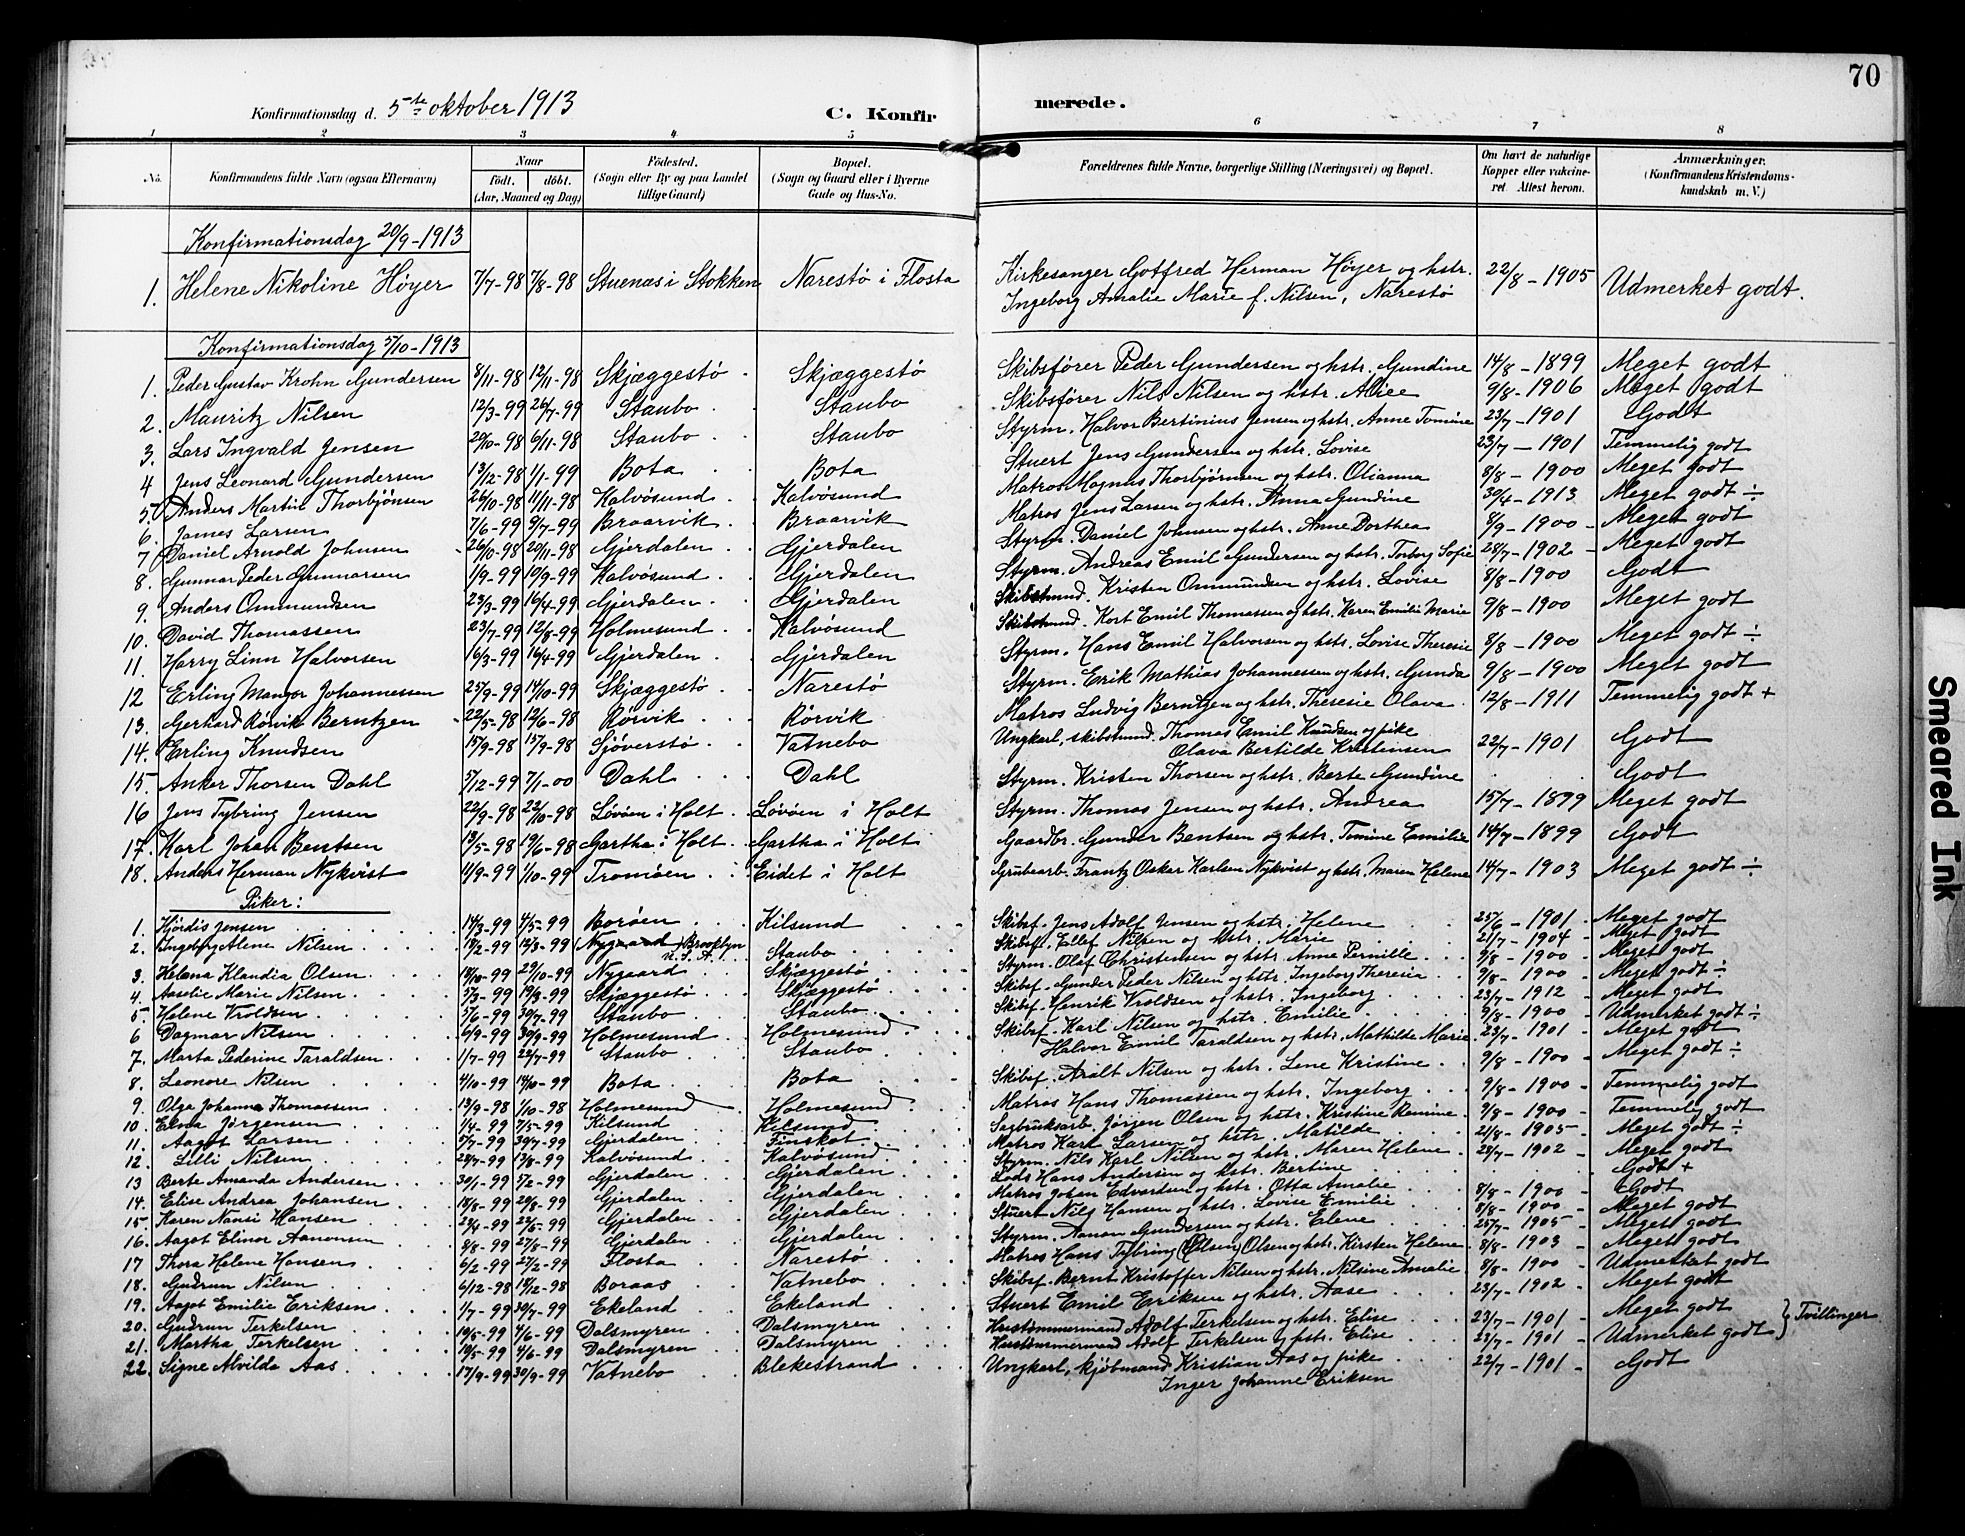 70
Konfirmationsdag d. 5te oktober 1913 C. Konfirmerede.
1 2 3 4 5 6 7 8
No. Konfirmandens fulde Navn (ogsaa Efternavn) Naar født. døbt. (Aar, Maaned og Dag) Fødested. (Sogn eller By og paa Landet tillige Gaard) Bopæl. (Sogn og Gaard eller i Byerne Gade og Hus-No. Forældrenes fulde Navne, borgerlige Stilling (Næringsvei) og Bopæl. Om havt de naturlige Kopper eller vakcineret. Attest herom. Anmærkninger. (Konfirmandens Kristendomskundskab m. V.)
Konfirmationsdag 20/9-1913
1. Helene Nikoline Høyer 7/7-98 7/8-98 Stuenæs i Stokken Narestø i Flosta Kirkesanger Gotfred Herman Høyer og hstr. Ingeborg Amalie Marie f. Nilsen, Narestø 22/8-1905 Udmerket godt.
Konfirmationsdag 5/10-1913
1. Peder Gustav Krohn Gundersen 8/11-98 12/11-98 Skjæggestø Skjæggestø Skibsfører Peder Gundersen og hstr. Gundine 14/8-1899 Meget godt
2. Mauritz Nilsen 12/3-99 26/7-99 Staubo Staubo Skibsfører Nils Nilsen og hstr. Alice 9/8-1906 Meget godt
3. Lars Ingvald Jensen 20/10-98 6/11-98 Staubo Staubo Styrm. Halvor Bertinius Jensen og hstr. Anne Tomine 23/7-1901 Godt
4 Jens Leonard Gundersen 13/12-98 1/1-99 Bota Bota Stuert Jens Gundersen og hstr. Lovise 23/7-1901 Temmelig godt
5. Anders Martin Thorbjønsen 26/10-98 11/11-98 Kalvøsund Kalvøsund Matros Magnus Thorbjørnsen og hstr. Olianna 8/8-1900 Meget godt
6. James Larsen 7/6-99 9/7-99 Braarvik Braarvik Matros Jens Larsen og hstr. Anna Gundine 30/4-1913 Meget godt ÷
7 Daniel Arnold Johnsen 26/10-98 20/11-98 Gjerdalen Gjerdalen Styrm. Daniel Johnsen og hstr. Anne Dorthea 8/9-1900 Meget godt
8. Gunnar Peder Gunnarsen 1/9-99 10/9-99 Kalvøsund Gjerdalen Styrm. Andreas Emil Gundersen og hstr. Torborg Sofie 28/7-1902 Meget godt
9. Anders Ommundsen 23/3-99 16/4-99 Gjerdalen Gjerdalen Skibstmd. Kristen Ommundsen og hstr. Lovise 8/8-1900 Godt
10. David Thomassen 23/7-99 12/8-99 Holmesund Kalvøsund Skibstmd. Kort Emil Thomassen og hstr. Karen Emilie Marie 9/8-1900 Meget godt
11. Harry Linn Halvorsen 16/3-99 16/4-99 Gjerdalen Gjerdalen Styrm. Hans Emil Halvorsen og hstr. Lovise Theresie 8/8-1900 Meget godt ÷
12 Erling Mangor Johannessen 25/9-99 14/10-99 Skjæggestø Narestø Styrm. Erik Mathias Johannessen og hstr. Gunda 9/8-1900 Meget godt
13. Gerhard Rørvik Berntzen 22/5-98 12/6-98 Rørvik Rørvik Matros Ludvig Berntzen og hstr. Theresie Olava 12/8-1911 Temmelig godt +
14. Erling Knudsen 15/9-98 15/9-98 Sjøverstø Vatnebo Ungkarl, skibstmd. Thomas Emil Knudsen og pike Olava Bertilde Kristensen 22/7-1901 Godt
15. Anker Thorsen Dahl 5/12-99 7/1-00 Dahl Dahl Styrm. Kristen Thorsen og hstr. Berte Gundine Godt
16 Jens Tybring Jensen 22/9-98 22/10-98 Løvøen i Holt Løvøen i Holt Styrm. Thomas Jensen og hstr. Andrea 15/7-1899 Meget godt
17. Karl Johan Bentsen 13/5-98 19/6-98 Gartha i Holt Gartha i Holt Gaardbr. Gunder Bentsen og hstr. Tomine Emilie 14/7-1899 Godt
18. Anders Herman Nykvist 11/9-99 1/10-99 Tromøen Eidet i Holt Grubearb. Frantz Oskar Karlsen Nykvist og hstr. Maren Helene 14/7-1903 Meget godt ÷
Piker:
1. Hjørdis Jensen 14/3-99 4/5-99 Borøen Kilsund Skibsf. Jens Adolf Jensen og hstr. Helene 25/6-1901 Meget godt
2. Ingeborg Alene Nilsen 18/2-99 12/3-99 (Nygaard) Brooklyn U.S.A. Staubo Skibsf. Ellef Nilsen og hstr. Marie 21/7-1904 Meget godt
3. Helena Klaudia Olsen 18/10-99 29/10-99 Nygaard Skjæggestø Styrm. Olaf Christensen og hstr. Anne Pernille 9/8-1900 Meget godt
4. Aaselie Marie Nilsen 5/3-99 19/3-99 Skjæggestø Skjæggestø Skibsf. Gunder Peder Nilsen og hstr. Ingeborg Theresia 9/8-1900 Meget godt ÷
5. Helene Vroldsen 5/6-99 30/7-99 Staubo Staubo Skibsf. Henrik Vroldsen og hstr. Ingeborg 23/7-1912 Meget godt
6 Dagmar Nilsen 6/9-99 30/9-99 Holmesund Holmesund Skibsf. Karl Nilsen og hstr. Emilie 9/8-1900 Udmerket godt ÷
7. Marta Pederine Taraldsen 1/7-99 22/7-99 Staubo Staubo Halvor Emil Taraldsen og hstr. Mathilde Marie 23/7-1901 Meget godt
8. Leonore Nilsen 4/10-99 14/10-99 Bota Bota Skibsf. Aralt Nilsen og hstr. Lene Kristine 9/8-1900 Meget godt ÷
9. Olga Johanne Thomassen 13/9-98 1/10-98 Holmesund Holmesund Matros Hans Thomassen og hstr. Ingeborg 9/8-1900 Temmelig godt
10. Elna Jørgensen 1/4-99 7/5-99 Kilsund Kilsund Sagbruksarb. Jørgen Olsen og hstr. Kristine Romine 9/8-1900 Temmelig godt
11. Aagot Larsen 5/7-99 30/7-99 Gjerdalen Finskot Matros Karl Larsen og hstr. Matilde 21/8-1905 Meget godt ÷
12. Lilli Nilsen 24/7-99 13/8-99 Kalvøsund Kalvøsund Styrm. Nils Karl Nilsen og hstr. Maren Helene 24/7-1902 Meget godt
13 Berte Amanda Andersen 30/1-99 5/2-99 Gjerdalen Gjerdalen Lods Hans Andersen og hstr. Bertine Godt +
14. Elise Andrea Johansen 18/8-99 20/8-99 Gjerdalen Gjerdalen Matros Johan Edvardsen og hstr. Otta Amalie 8/8-1900 Godt
15. Karen Nansi Hansen 23/4-99 22/5-99 Gjerdalen Gjerdalen Stuert Nils Hansen og hstr. Lovise Emilie 8/8-1900 Meget godt
16. Aagot Elinor Aanonsen 8/8-99 27/8-99 Gjerdalen Gjerdalen Styrm. Aanon Gundersen og hstr. Elene 25/7-1905 Meget godt
17 Thora Helene Hansen 6/2-99 27/2-99 Flosta Narestø Matros Hans Tybring (Olsen) Olsen og hstr. Kirsten Helene 8/8-1903 Meget godt
18. Gudrun Nilsen 6/12-98 18/12-98 Boraas Vatnebo Skibsf. Bernt Kristoffer Nilsen og hstr. Nilsine Amalie 8/8-1900 Udmerket godt
19. Aagot Emilie Eriksen 1/7-99 30/7-99 Ekeland Ekeland Stuert Emil Eriksen og hstr. Aase 23/7-1902 Meget godt
20. Gudrun Terkelsen 10/5-99 4/6-99 Dalsmyren Dalsmyren Hustømmermand Adolf Terkelsen og hstr. Elise 23/7-1901 Meget godt } Tvillinger
21. Martha Terkelsen 10/5-99 4/6-99 Dalsmyren Dalsmyren Hustømmermand Adolf Terkelsen og hstr. Elise 23/7-1901 Udmerket godt
22. Signe Alvilda Aas 17/9-99 30/9-99 Vatnebo Blekestrand Ungkarl, kjøbmand Kristian Aas og pike Inger Johanne Eriksen 22/7-1901 Godt
Smeared Ink